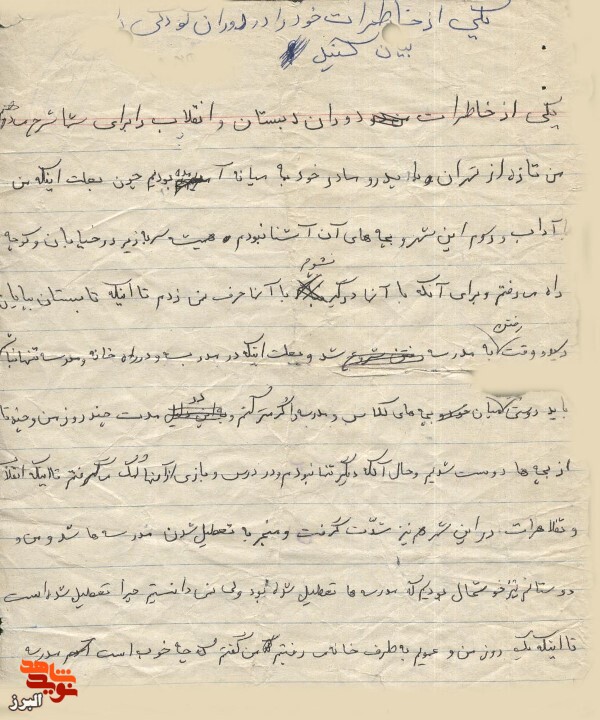 یکی از خاطرات خود را در دوران کودکی
بیان کنید
یکی از خاطرات دوران دبستان و انقلاب را برای شما شرح میدهم
من تازه از تهران با پدر و مادر خود به میانه آمده بودیم چون بعلت اینکه من
با آداب و رسوم این شهر و بچه های آن آشنا نبودم همیشه سربزیر در خیابان و کوچه
راه می رفتم و برای آنکه با آنها درگیر نشوم با آنها حرف نمی زدم تا اینکه تابستان بپایان
رسید و وقت رفتن به مدرسه شد و بعلت اینکه در مدرسه و در راه خانه و مدرسه تنها نباشم
باید دوستی میان بچه های کلاس و مدرسه را گرمتر کنم و در مدت چند روز من و چند تا
از بچه ها دوست شدیم و حال آنکه دیگر تنها نبودم و در درس و بازی از آنها کمک می گرفتم تا اینکه انقلاب
و تظاهرات در این شهر هم نیز شدّت گرفت و منجر به تعطیل شدن مدرسه ها شد و من و
دوستانم نیز خوشحال بودیم که مدرسه ها تعطیل شده بود ولی نمی دانستیم چرا تعطیل شده است
تا اینکه یک روز من و عمویم به طرف خانه می رفتیم من گفتم که چه خوب است مدرسه
شاهد
نوید
البرز